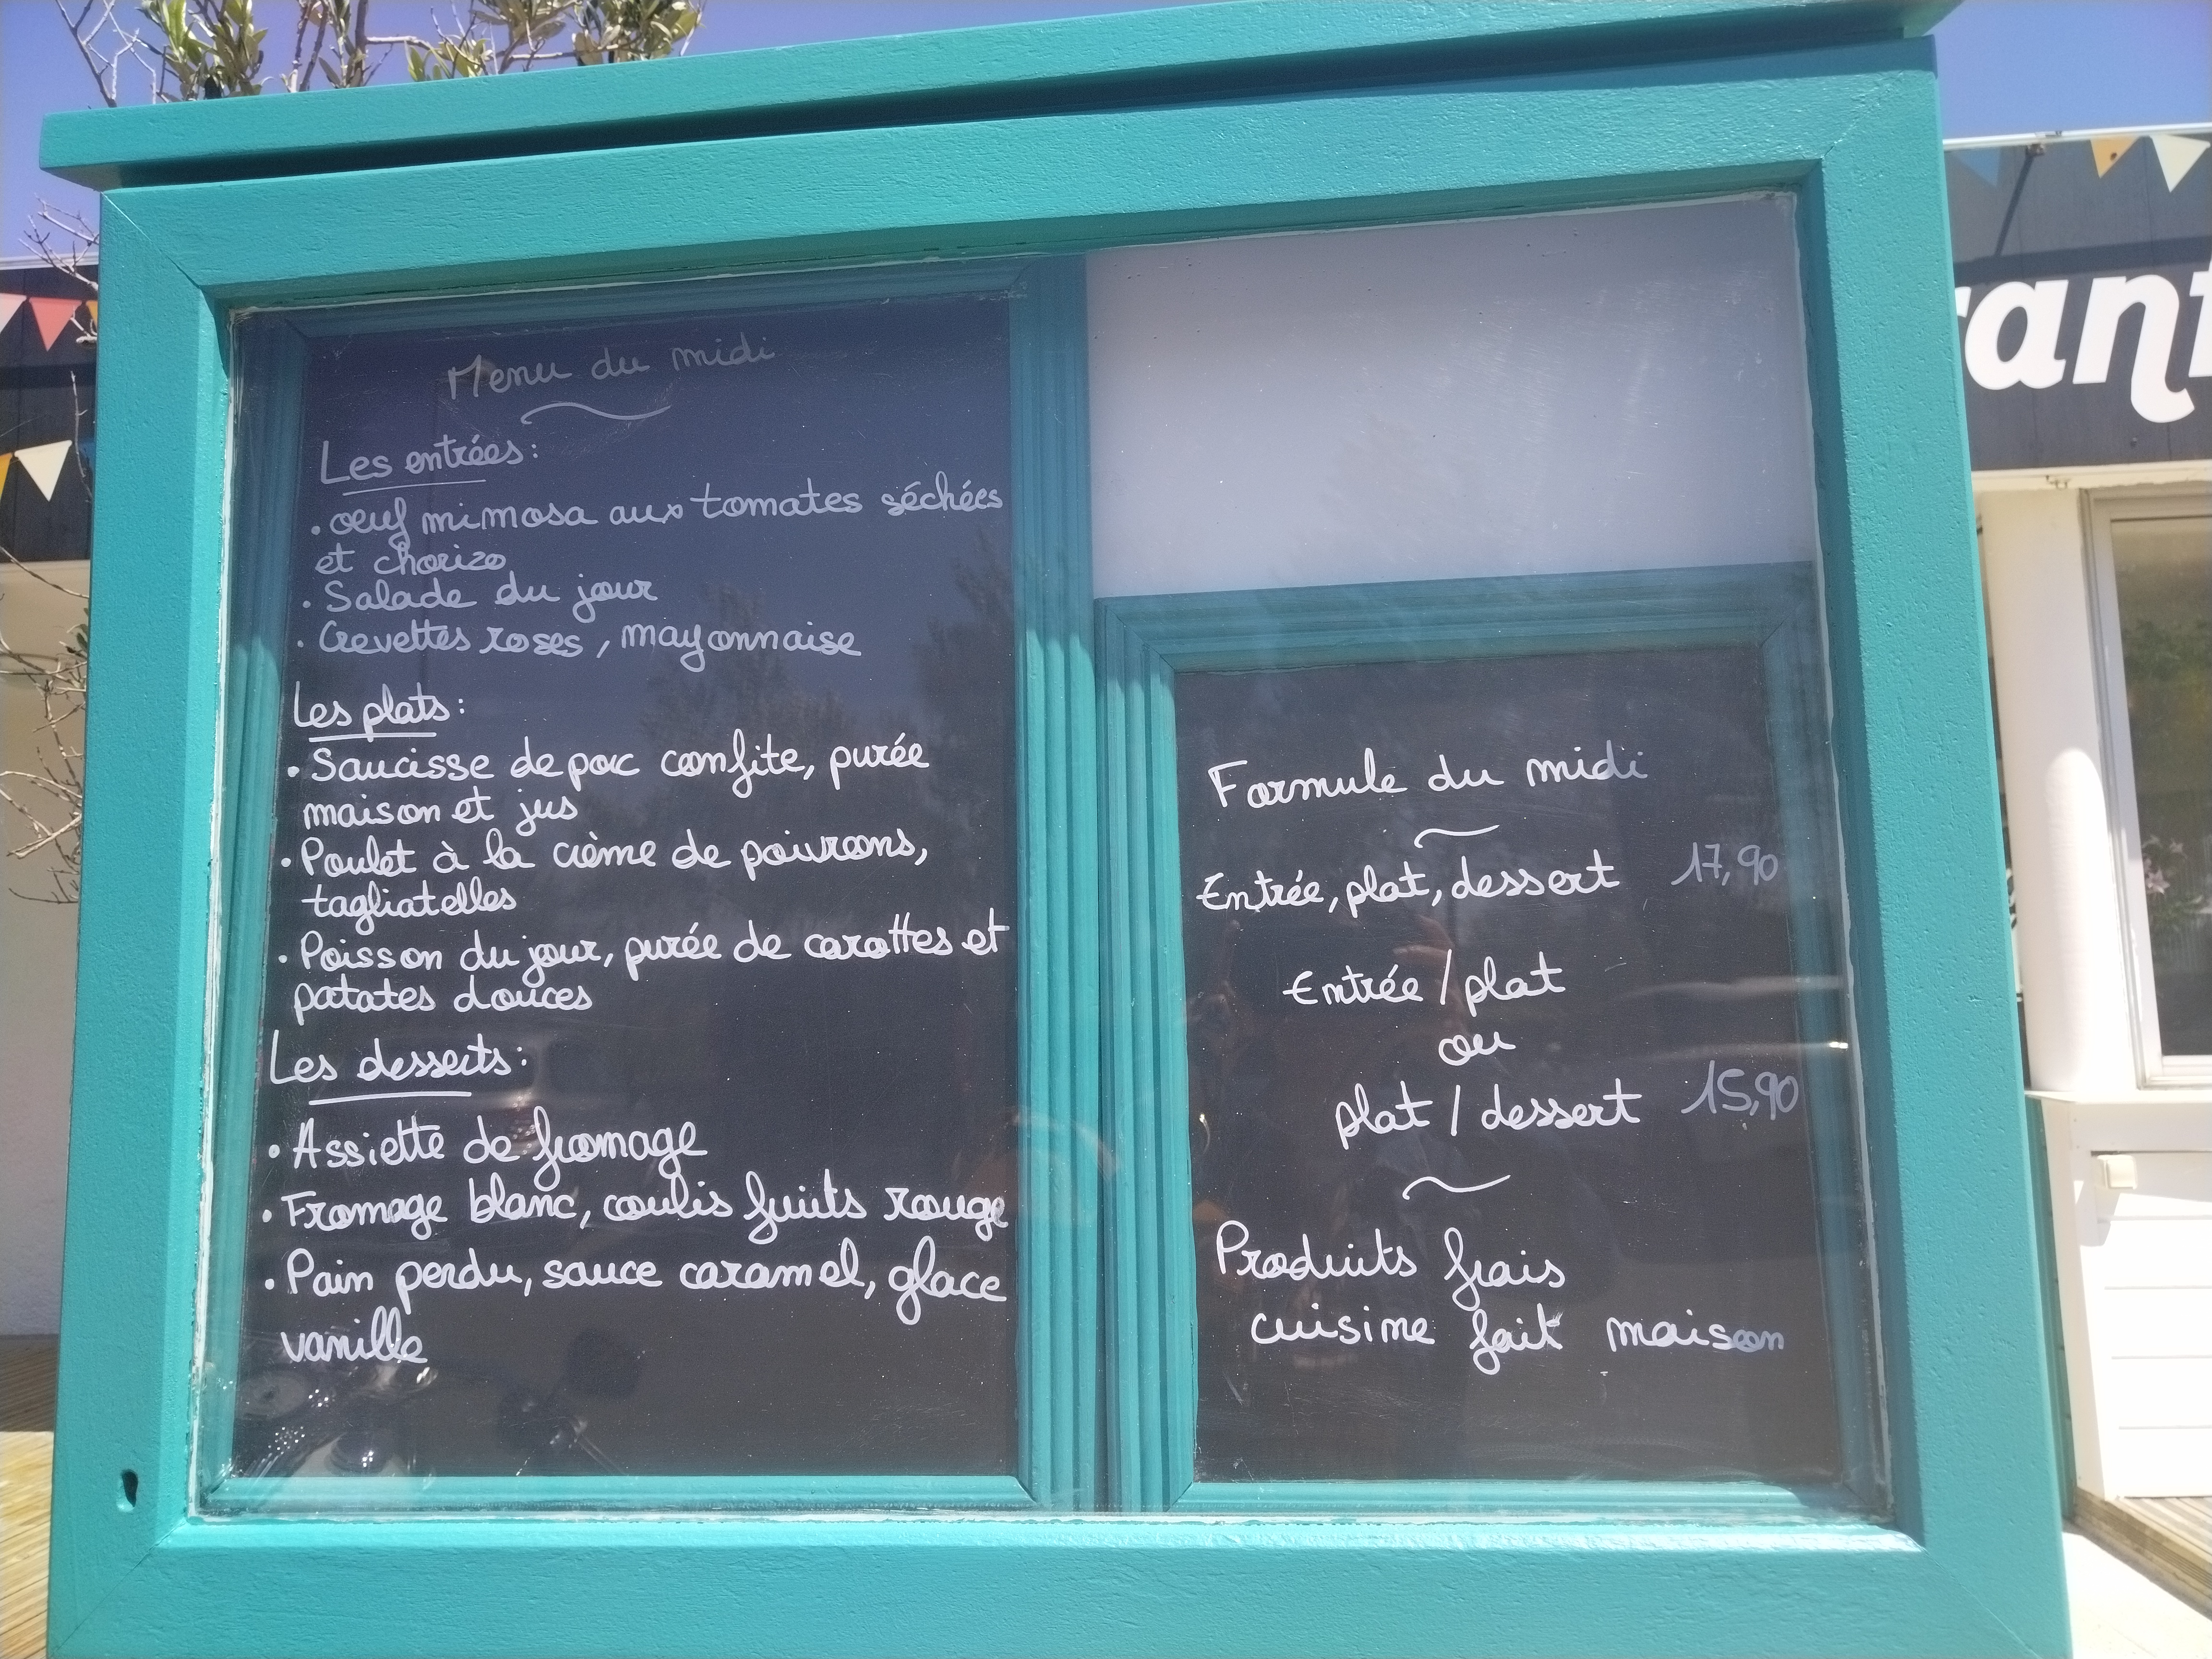 Menu du midi
Les entrées:
. oeuf mimosa aux tomates séchées
et chorizo
. Salade du jour
. Crevettes roses, mayonnaise
Les plats:
. Saucisse de porc confite, purée
maison et jus
. Poulet à la crème de poivrons,
tagliatelles
. Poisson du jour, purée de carottes et
patates douces
Les desserts:
. Assiette de fromage
. Fromage blanc, coulis fruits rouge
. Pain perdu, sauce caramel, glace
vanille
Formule du midi
Entrée, plat, dessert 17,90
Entrée / plat
ou
plat / dessert 15,90
Produits frais
cuisine fait maison